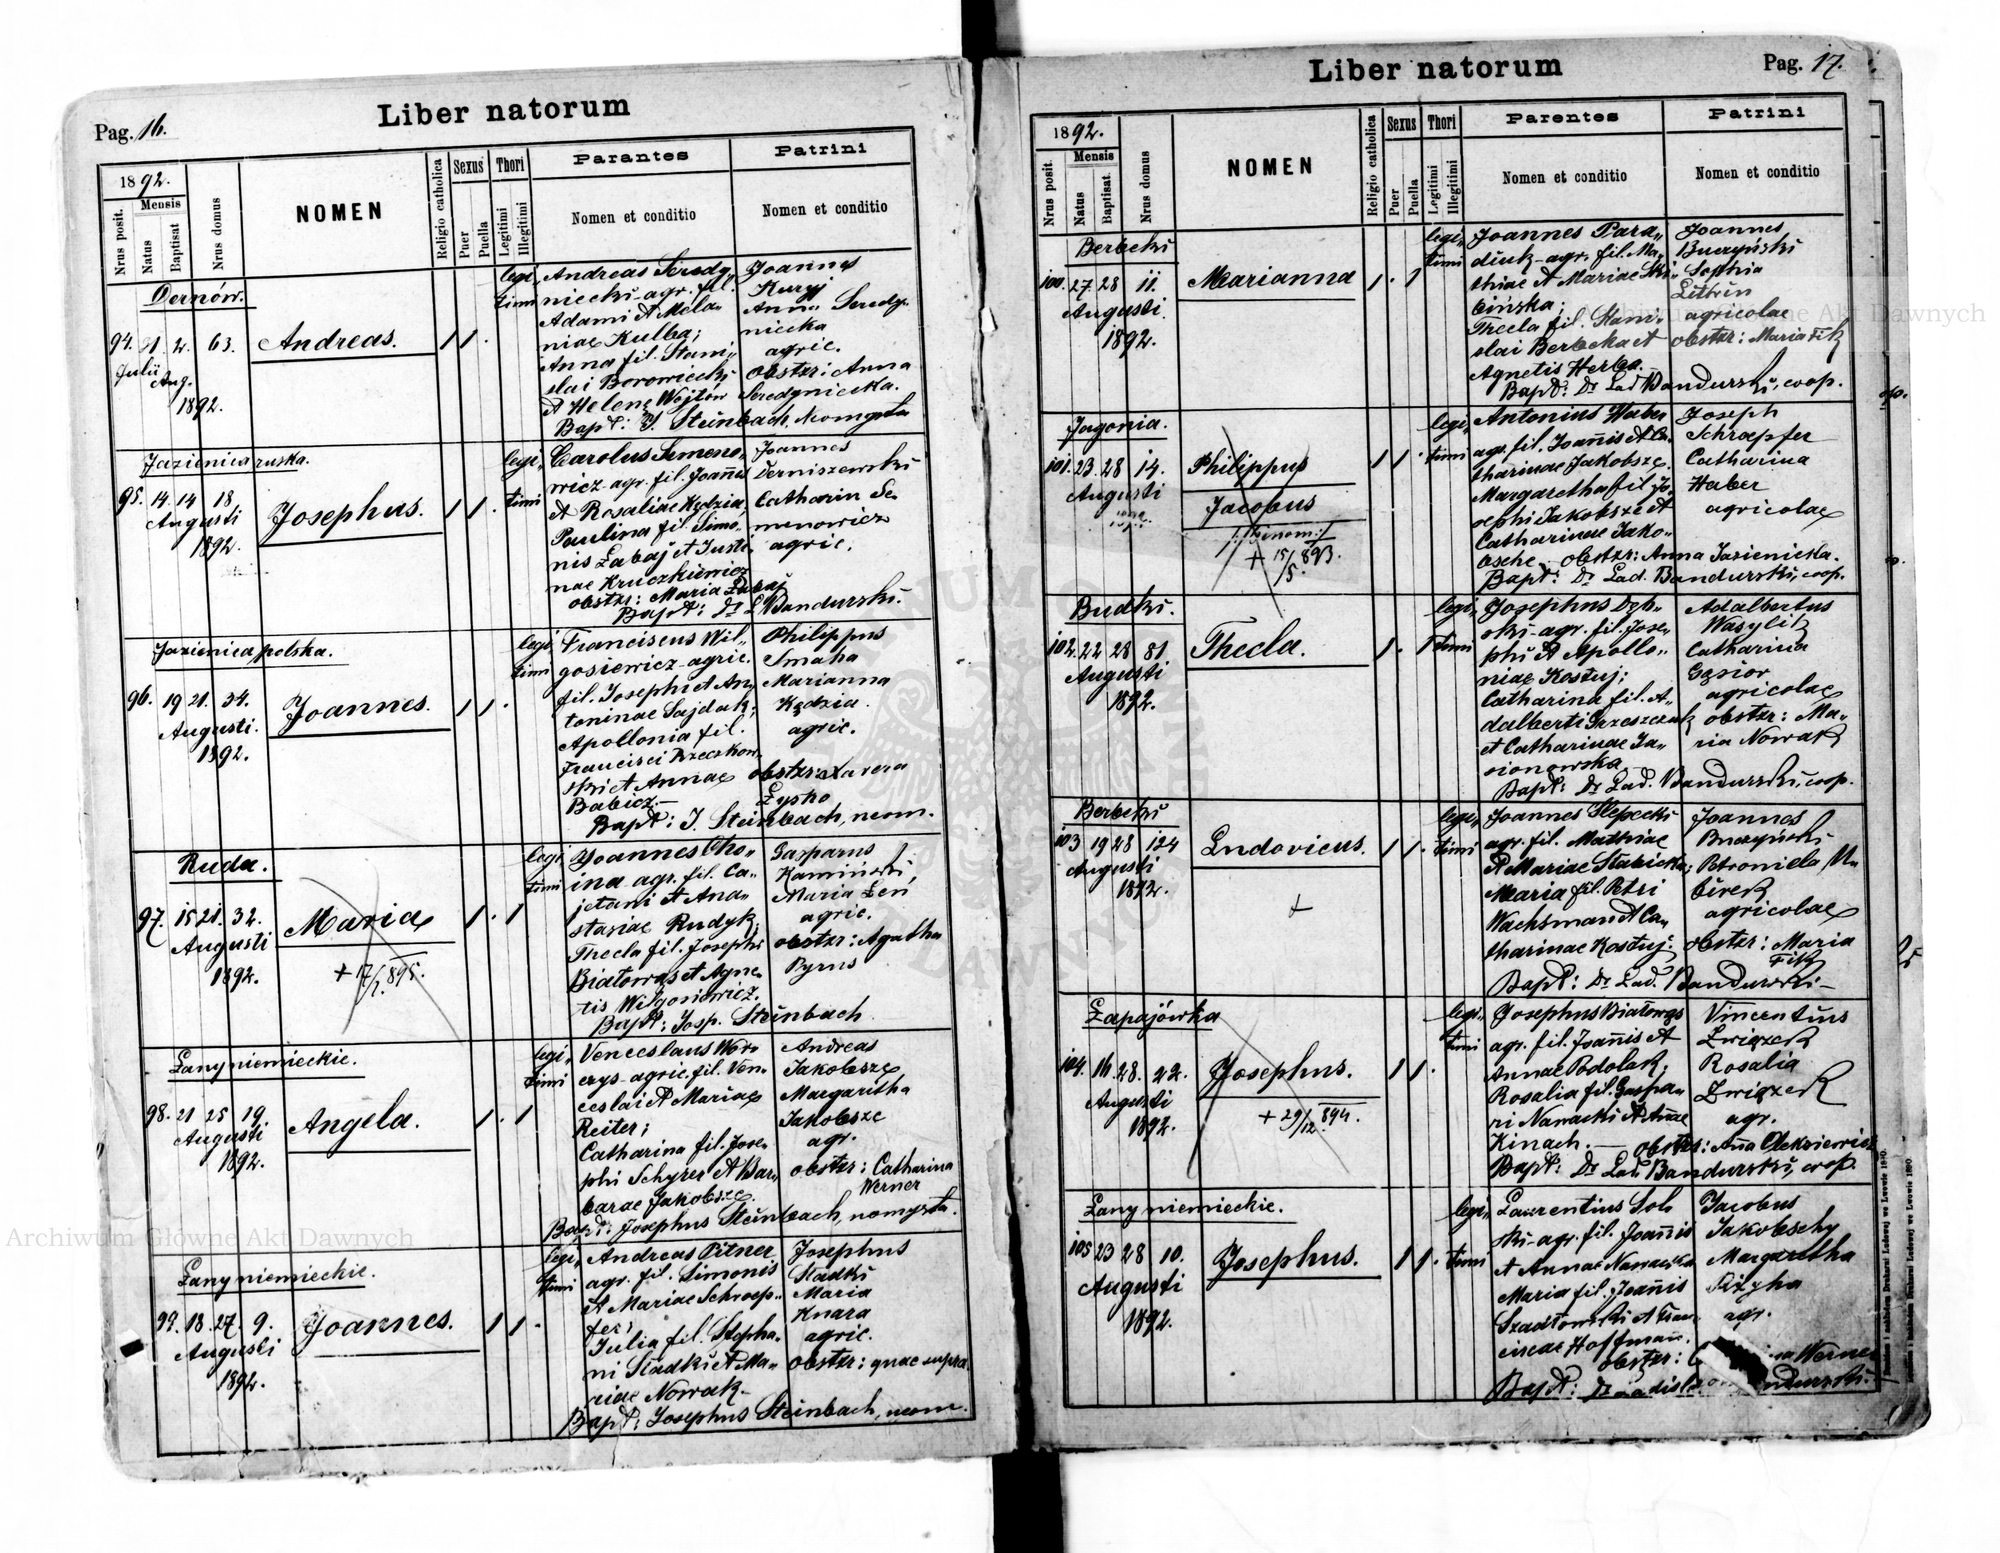 Pag. 16.
Liber natorum
1892.
Mensis
Nrus posit.
Natus
Baptisat
Nrus domus
NOMEN
Religio catholica
Sexus
Puer
Puella
Thori
Legitimi
Illegitimi
Parantes
Nomen et conditio
Patrini
Nomen et conditio
Dernów.
94. 31 2. 63.
Julii Aug.
1892.
Andreas.
1 1 .
legi,,
timi
Andreas Seredy,,
niecki agr. fil.
Adami et Mela,,
niae Kulba;
Anna fil. Stani,,
slai Borowiecki
et Helenę Wojtów
Bapt: J. Steinbach, Neomysta
Joannes
Kuryj
Anna Seredy,,
niecka
agric.
obstzr: Anna
Seredyniecka.
Jazienica ruska.
95. 14. 14 18
Augusti
1892.
Josephus.
1 1 .
legi,,
timi
Carolus Semeno,,
wicz agr. fil. Joannis
et Rosaliae Kędzia,
Paulina fil. Simo,,
nis Łabaj et Justi,,
nae Kruczkiewicz
obstzr: Maria Łabaj
Bapt: Dr. L. Bandurski.
Joannes
Derniszewski
Catharin Se,,
menowicz
agric.
Jazienica polska.
96. 19 21. 34.
Augusti.
1892.
Joannes.
1 1 .
legi,,
timi
Franciscus Wil,,
gosiewicz agric.
fil. Josephi et An,,
toninae Sajdak;
Apollonia fil.
Francisci Rzeczkow,,
ski et Annae
Babicz.—
Bapt: J. Steinbach, neom.
Philippus
Smaha
Marianna
Kędzia
agric.
obstzr: Xavera
Łysko
Ruda.
97. 15 21. 32.
Augusti
1892.
Maria
+ 17/1. 895.
1 . 1
legi
timi
Joannes Cho,,
ina agr. fil. Ca,,
jetani et Ana,,
stasiae Rudyk;
Thecla fil. Josephi
Białowąs et Agne,,
tis Wilgosiewicz.
Bapt: Josp. Steinbach
Gasparus
Kamiński,
Maria Leń
agric.
obstzr: Agatha
Pyrns
Łany niemieckie.
98. 21 25 19.
Augusti
1892.
Angela.
1 . 1
legi,,
timi
Venceslaus Wor,,
crys agric. fil. Ven,,
ceslai et Mariae
Reiter;
Catharina fil. Jose,,
phi Schyrer et Bar,,
barae Jakobsze.
Bapt: Josephus Steinbach, nomysta.
Andreas
Jakobsze
Margaritha
Jakobsze
agr.
obstzr: Catharina
Werner
Łany niemieckie.
99. 18. 27. 9.
Augusti
1892.
Joannes.
1 1 .
legi,,
timi
Andreas Pitner
agr. fil. Simonis
et Mariae Schroep,,
fer;
Julia fil. Stepha,,
ni Sładki et Ma,,
riae Nowak.
Bapt: Josephus Steinbach, neom.
Josephus
Sładki
Maria
Knara
agric.
obstzr: quae supra.
Liber natorum
Pag. 17.
1892.
Mensis
Nrus posit.
Natus
Baptisat.
Nrus domus
NOMEN
Religio catholica
Sexus
Puer
Puella
Thori
Legitimi
Illegitimi
Parentes
Nomen et conditio
Patrini
Nomen et conditio
Berbeki
100. 27. 28 11.
Augusti
1892.
Marianna
1 . 1
legi,,
timi
Joannes Para,,
diuk agr. fil. Ma,,
thiae et Mariae Ski,,
bińska;
Thecla fil. Stani,,
slai Berbeka et
Agnetis Herba.
Bapt: Dr. Lad Bandurski, coop.
Joannes
Buczyński
Sophia
Litwin
agricolae
obstzr: Maria Fik
Jagonia.
101. 23. 28 14.
Augusti
Philippus
Jacobus
/: binom :/
+ 15/5. 893.
1 1 .
legi,,
timi
Antonius Haber
agr. fil. Joanis et Ca,,
tharinae Jakobsze.
Margaretha fil. Jo,,
sephi Jakobsze et
Catharinae Jako,,
bsche. obstzr: Anna Jazienicka.
Bapt: Dr. Lad. Bandurski, coop.
Joseph
Schroepfer
Catharina
Haber
agricolae
Budki.
102. 22 28 81
Augusti
1892.
Thecla.
1 . 1
legi,,
timi
Josephus Dęb,,
ski agr. fil. Jose,,
phi et Apollo,,
niae Kostuj;
Catharina fil. A,,
dalberti Grzeszczuk
et Catharinae Ja,,
sionowska
Bapt: Dr. Lad. Bandurski, coop.
Adalbertus
Wasylik
Catharina
Gąsior
agricolae
obstzr: Ma,,
ria Nowak
Berbeki
103 19 28 124
Augusti
1892.
Ludovicus.
+
1 1 .
legi,,
timi
Joannes Slepecki
agr. fil. Mathiae
et Mariae Stabicka;
Maria fil. Petri
Wachsman et Ca,,
tharinae Kostuj.
Bapt: Dr. Lad. Bandurski—
Joannes
Buczyński
Petronella Wę,,
birek
agricolae
obstzr: Maria
Fik
Łapajówka
104. 16. 28. 22.
Augusti
1892.
Josephus.
+ 29/12. 894.
1 1 .
legi,,
timi
Josephus Białowąs
agr. fil. Joannis et
Annae Podolak;
Rosalia fil. Gaspa,,
ri Nawacki et Annae
Kinach.— obstzr: Anna Oleksiewicz
Bapt: Dr. Lad. Bandurski, coop.
Vincentius
Związek
Rosalia
Związek
agr.
Łany niemieckie.
105 23 28 10.
Augusti
1892.
Josephus.
1 1 .
legi,,
timi
Laurentius Sols
ski agr. fil. Joannis
et Annae Nawacka
Maria fil. Joannis
Szadłowski et Fran,,
ciscae Hoffman.
obstzr: Werner
Bapt: Dr. Bandurski.
Jacobus
Jakobschy
Margaretha
agr.
Archiwum Główne Akt Dawnych
Archiwum Główne Akt Dawnych